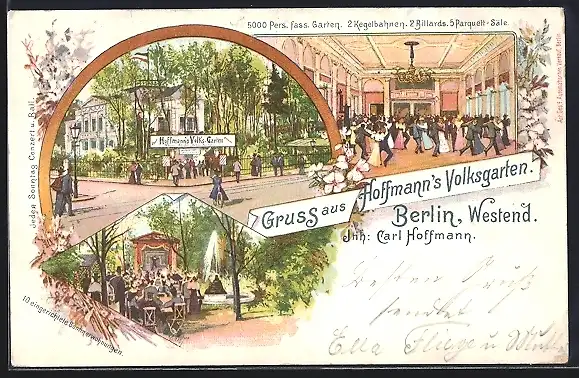 5000 Pers. fass. Garten. 2 Kegelbahnen. 2 Billards. 5 Parquett-Säle.
Jeden Sonntag Concert u. Ball.
Hoffmann's Volks-Garten
Gruss aus Hoffmann's Volksgarten.
Berlin, Westend.
Inh: Carl Hoffmann.
10 eingerichtete
Besten Gruß
sendet
Ella Fliege u